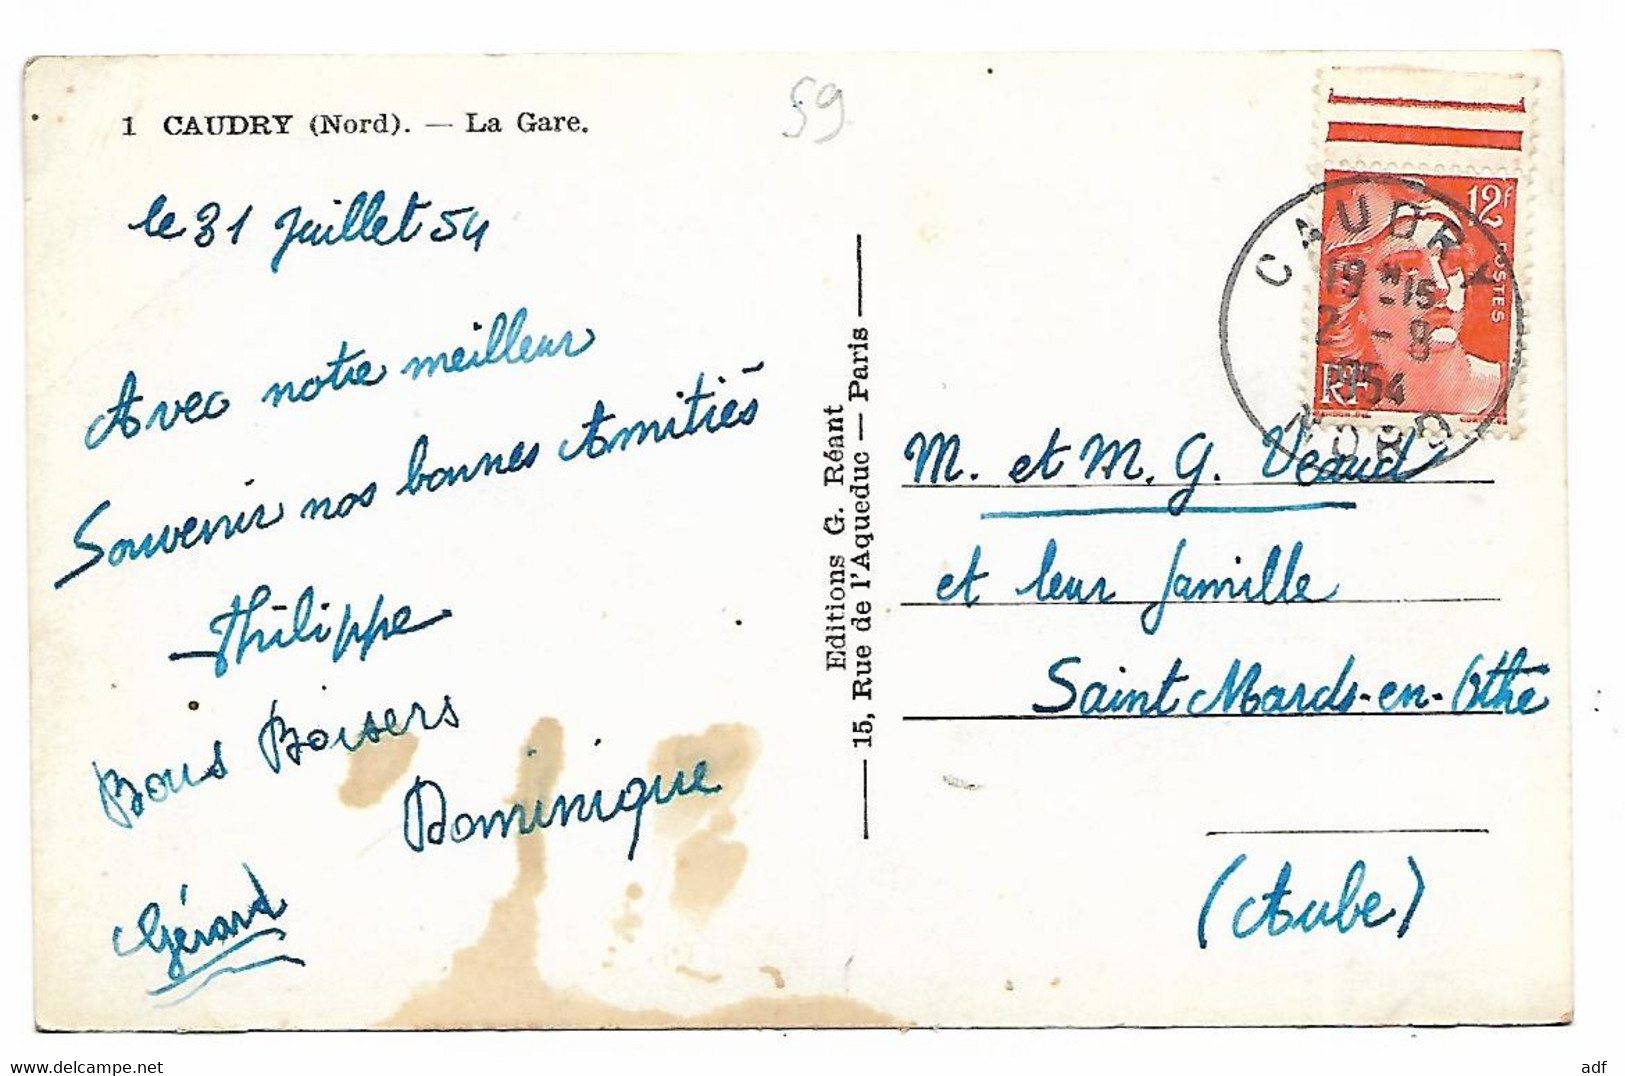 1 CAUDRY (Nord). — La Gare.
59
le 31 Juillet 54
Avec notre meilleur
Souvenir nos bonnes Amitiés
Philippe
Bons Baisers
Dominique
Gérard
Editions G. Réant
15, Rue de l'Aqueduc — Paris
12f
POSTES
RF
CAUDRY
19H-15
2-8
1954
NORD
M. et M. G. Veaud
et leur famille
Saint Mards-en-Othe
(Aube)
adf